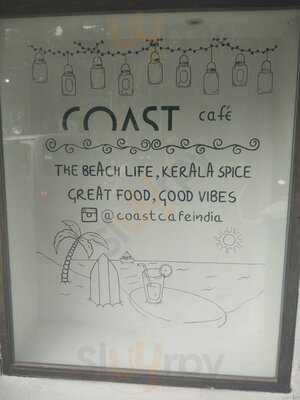 COAST café
THE BEACH LIFE, KERALA SPICE
GREAT FOOD, GOOD VIBES
@coastcafeindia
Sluurpy